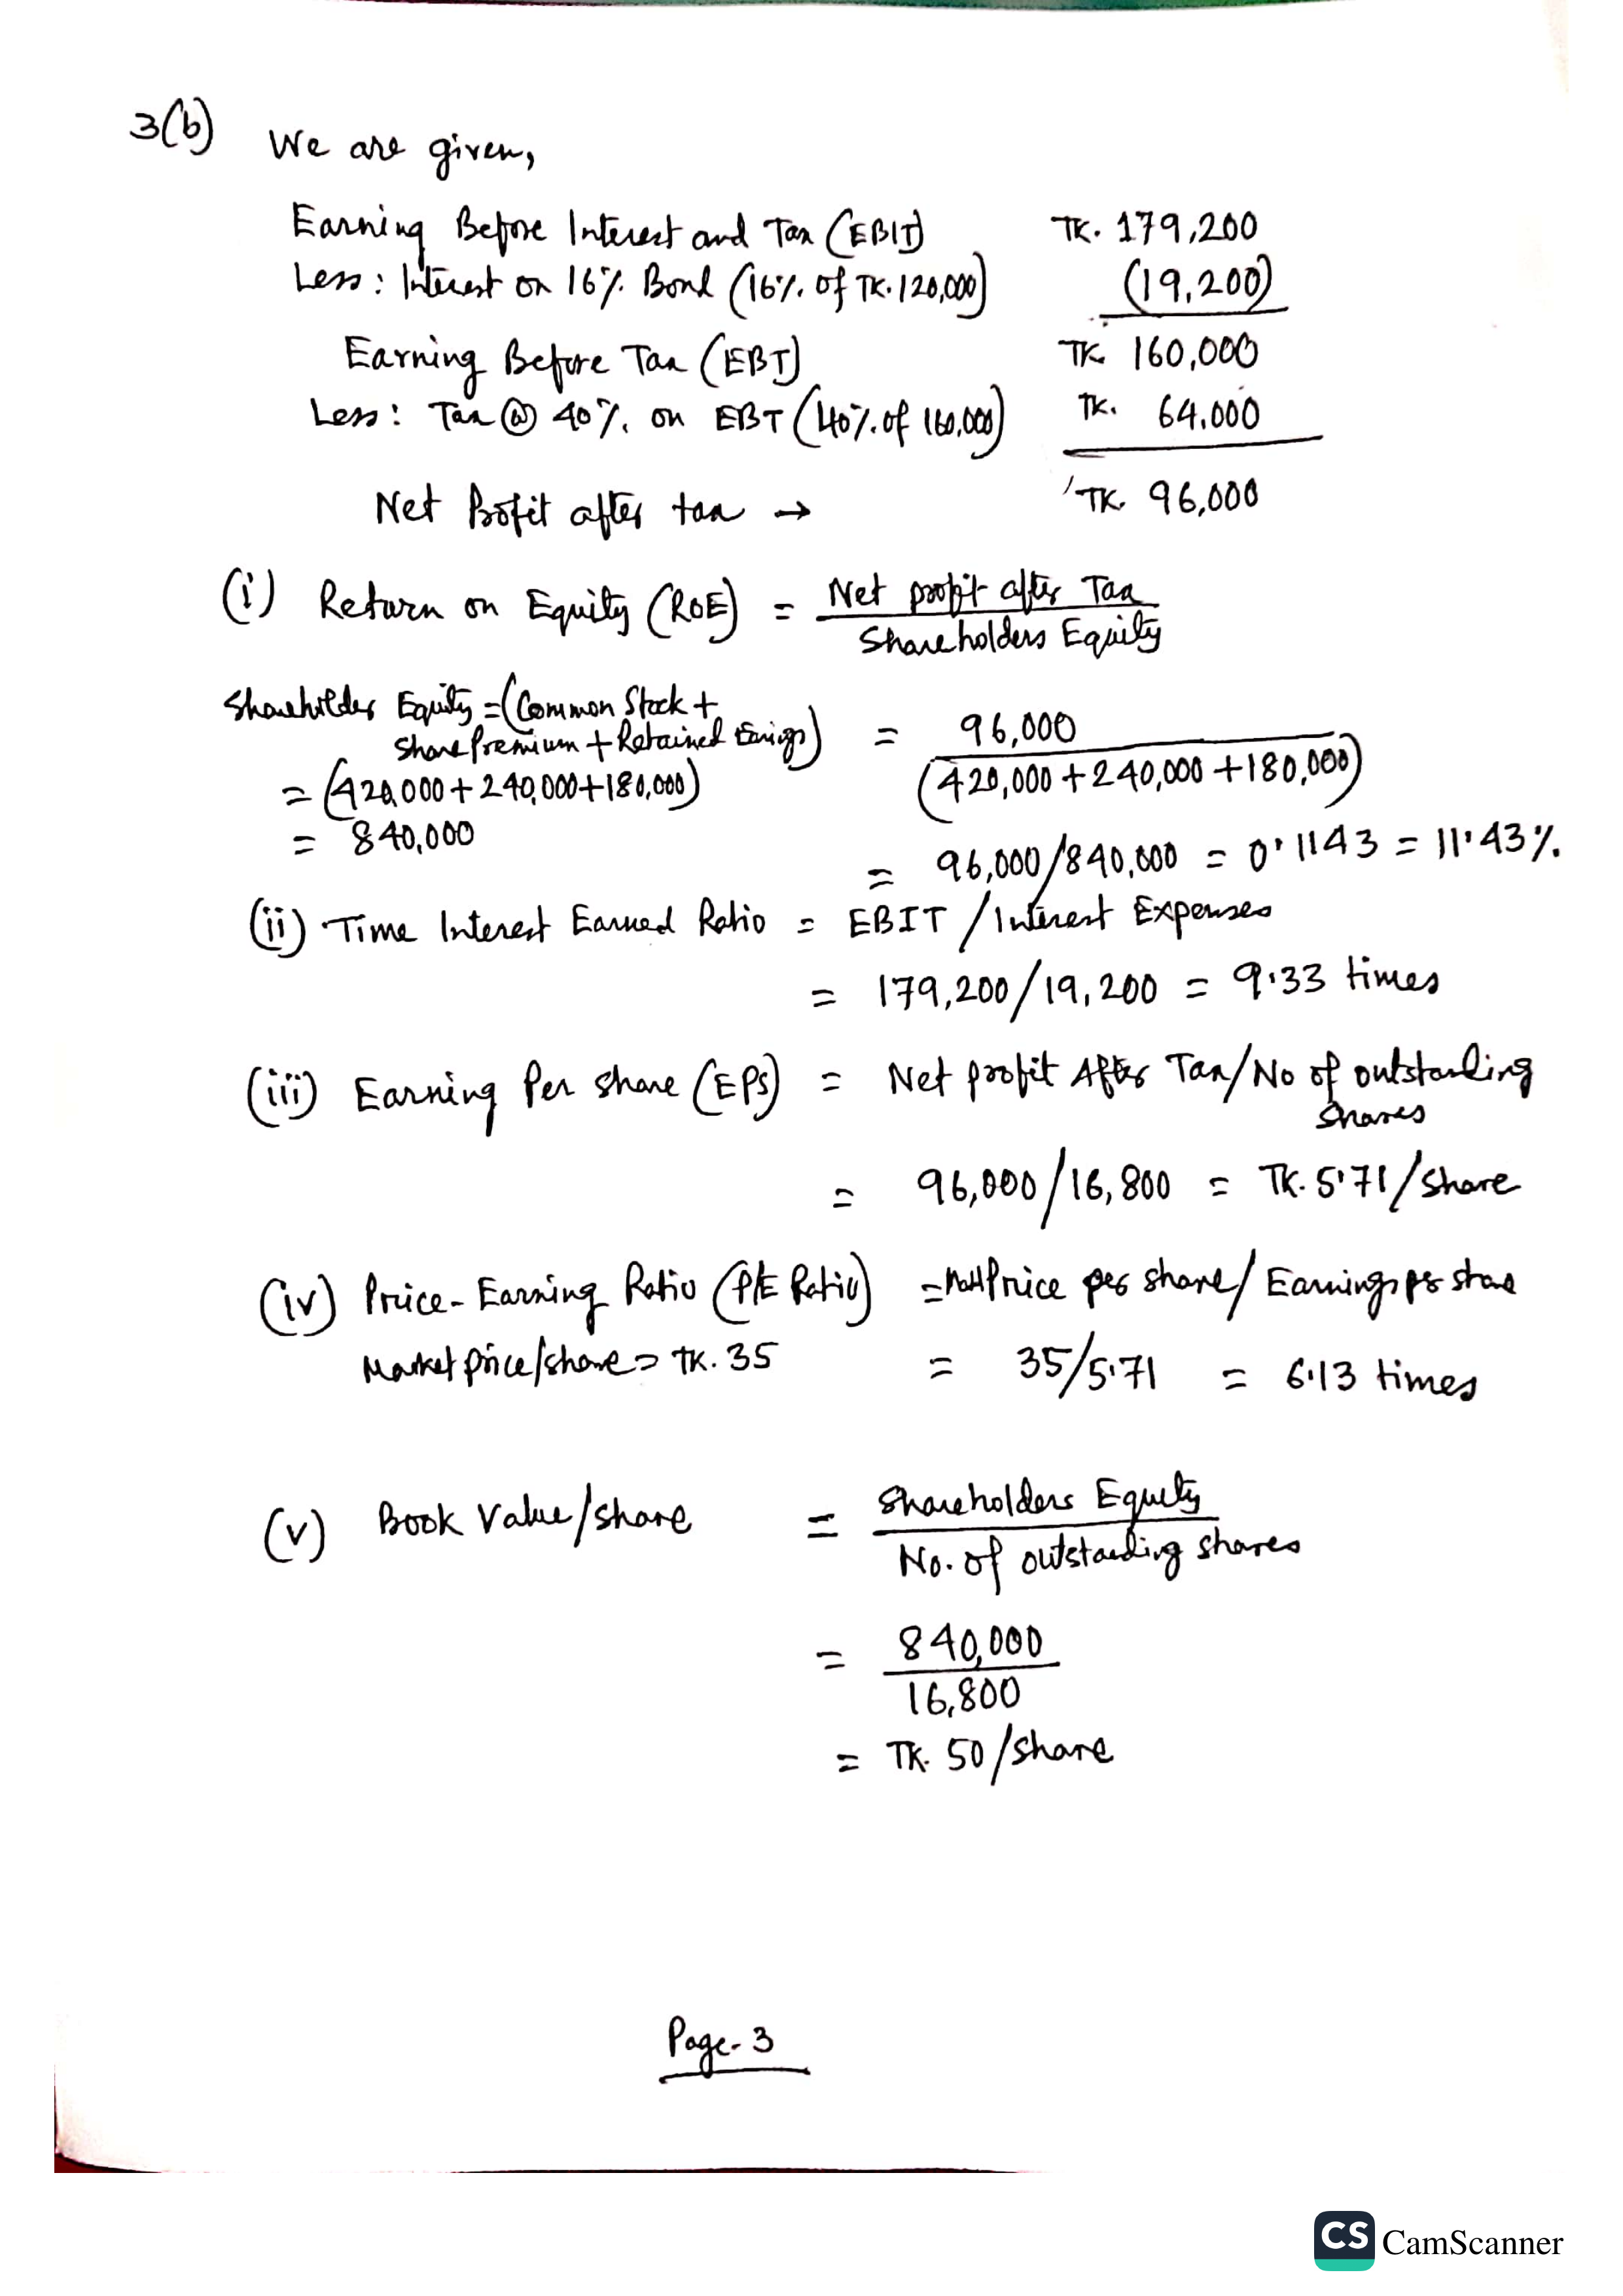 3(b) We are given,
Earning Before Interest and Tax (EBIT) TK. 179,200
Less: Interest on 16% Bond (16% of TK. 120,000) (19,200)
Earning Before Tax (EBT) TK 160,000
Less: Tax @ 40% on EBT (40% of 160,000) TK. 64,000
Net Profit after tax → TK. 96,000
(i) Return on Equity (ROE) = Net profit after Tax
Shareholders Equity
Shareholder Equity = (Common Stock +
Share Premium + Retained Earnings) = 96,000
= (420,000 + 240,000 + 180,000) (420,000 + 240,000 + 180,000)
= 840,000
= 96,000/840,000 = 0.1143 = 11.43%
(ii) Time Interest Earned Ratio = EBIT / Interest Expenses
= 179,200/19,200 = 9.33 times
(iii) Earning Per Share (EPS) = Net profit After Tax/No of outstanding
Shares
= 96,000/16,800 = TK. 5.71/Share
(iv) Price-Earning Ratio (P/E Ratio) = Price per share/Earnings per share
Market price/share = TK. 35 = 35/5.71 = 6.13 times
(v) Book Value/share = Shareholders Equity
No. of outstanding shares
= 840,000
16,800
= TK. 50/share
Page-3
CS CamScanner